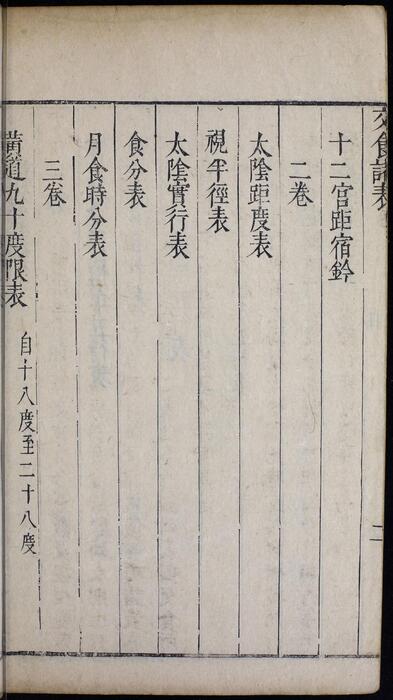 交食諸表
二
十二宮距宿鈐
二卷
太陰距度表
視半徑表
太陰實行表
食分表
月食時分表
三卷
黃道九十度限表 自十八度至二十八度